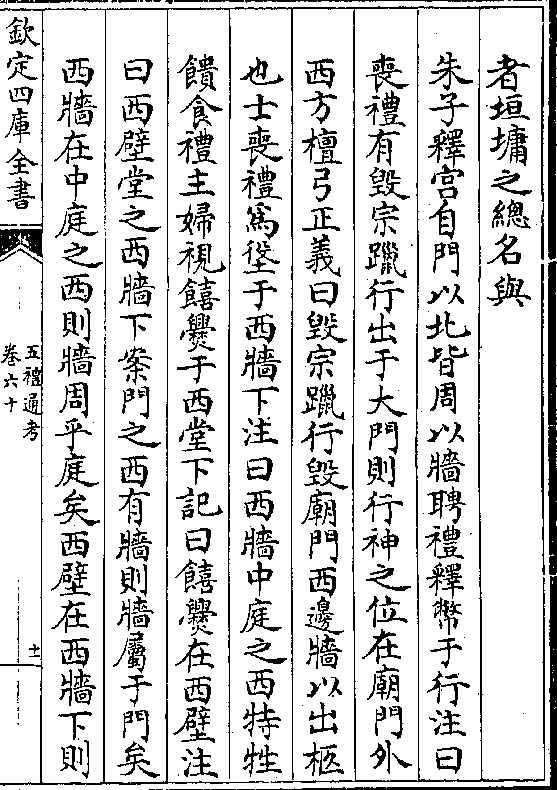 者垣墉之總名與
朱子釋宫自門以北皆周以牆聘禮釋幣于行注曰
喪禮有毁宗躐行出于大門則行神之位在廟門外
西方檀弓正義曰毁宗躐行毁廟門西邊牆以出柩
也士喪禮爲垼于西牆下注曰西牆中庭之西特牲
饋食禮主婦視饎爨于西堂下記曰饎爨在西壁注
曰西壁堂之西牆下案門之西有牆則牆屬于門矣
西牆在中庭之西則牆周乎庭矣西壁在西牆下則
欽定四庫全書
五禮通考
卷六十
十一